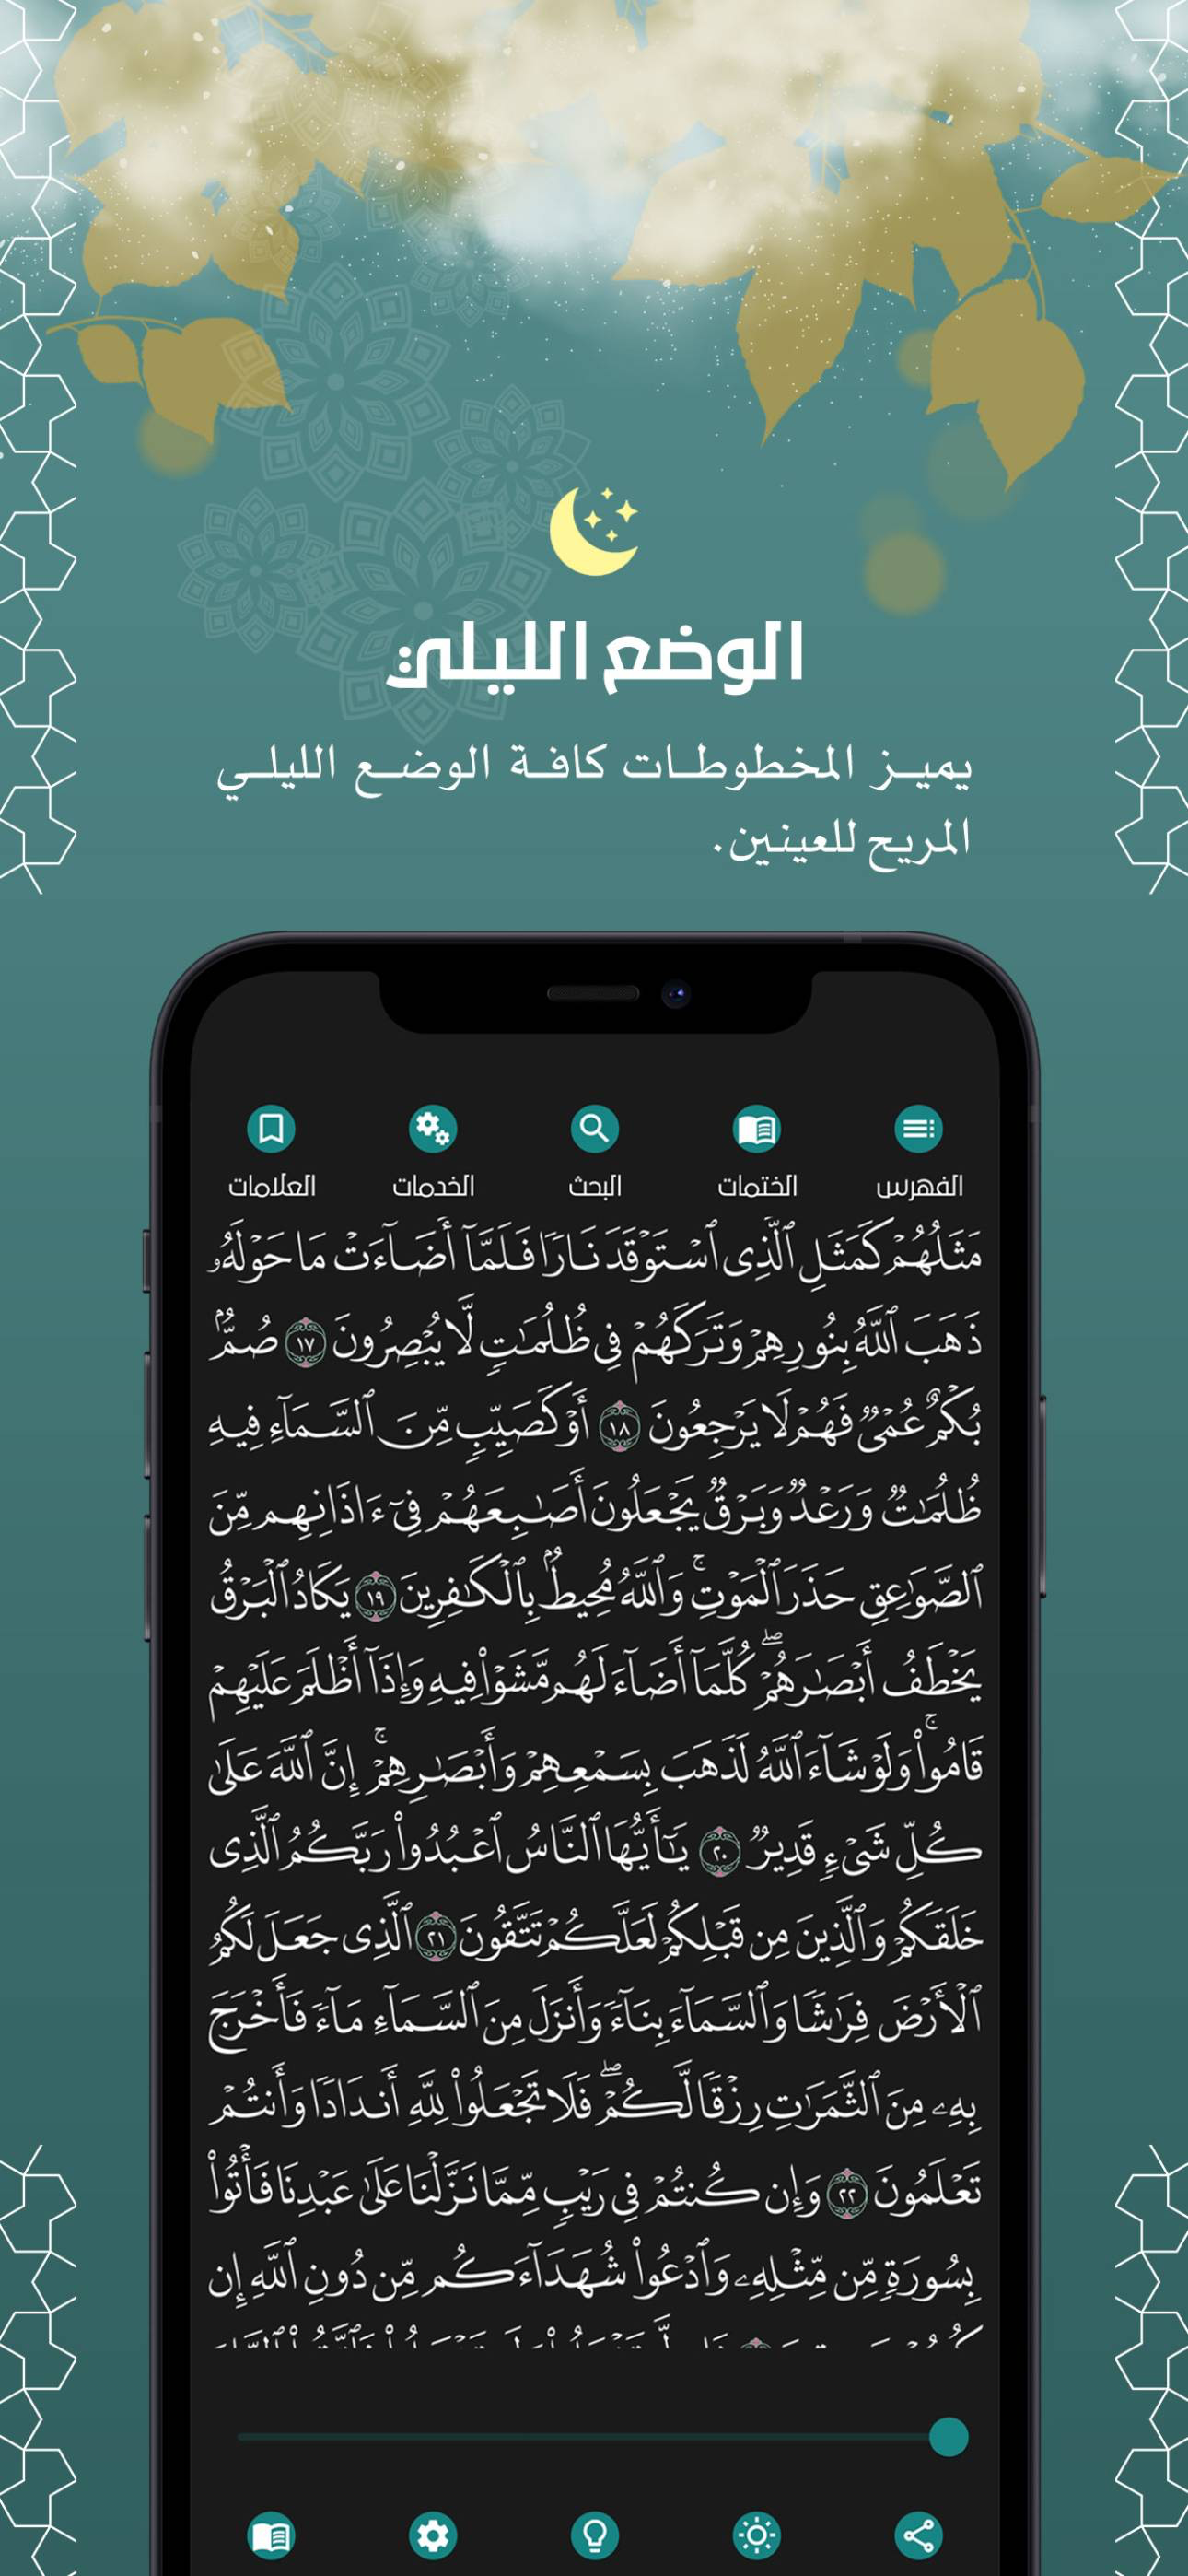 الوضع الليلي:
يميز المخطوطات كافة الوضع الليلي
المريح للعينين.
الفهرس
الختمات
البحث
الخدمات
العلامات
مَثَلُهُمْ كَمَثَلِ ٱلَّذِى ٱسْتَوْقَدَ نَارًا فَلَمَّآ أَضَآءَتْ مَا حَوْلَهُۥ
ذَهَبَ ٱللَّهُ بِنُورِهِمْ وَتَرَكَهُمْ فِى ظُلُمَٰتٍ لَّا يُبْصِرُونَ ١٧ صُمٌّۢ
بُكْمٌ عُمْىٌ فَهُمْ لَا يَرْجِعُونَ ١٨ أَوْ كَصَيِّبٍ مِّنَ ٱلسَّمَآءِ فِيهِ
ظُلُمَٰتٌ وَرَعْدٌ وَبَرْقٌ يَجْعَلُونَ أَصَٰبِعَهُمْ فِىٓ ءَاذَانِهِم مِّنَ
ٱلصَّوَٰعِقِ حَذَرَ ٱلْمَوْتِ ۚ وَٱللَّهُ مُحِيطٌۢ بِٱلْكَٰفِرِينَ ١٩ يَكَادُ ٱلْبَرْقُ
يَخْطَفُ أَبْصَٰرَهُمْ ۖ كُلَّمَآ أَضَآءَ لَهُم مَّشَوْا۟ فِيهِ وَإِذَآ أَظْلَمَ عَلَيْهِمْ
قَامُوا۟ ۚ وَلَوْ شَآءَ ٱللَّهُ لَذَهَبَ بِسَمْعِهِمْ وَأَبْصَٰرِهِمْ ۚ إِنَّ ٱللَّهَ عَلَىٰ
كُلِّ شَىْءٍ قَدِيرٌ ٢٠ يَٰٓأَيُّهَا ٱلنَّاسُ ٱعْبُدُوا۟ رَبَّكُمُ ٱلَّذِى
خَلَقَكُمْ وَٱلَّذِينَ مِن قَبْلِكُمْ لَعَلَّكُمْ تَتَّقُونَ ٢١ ٱلَّذِى جَعَلَ لَكُمُ
ٱلْأَرْضَ فِرَٰشًا وَٱلسَّمَآءَ بِنَآءً وَأَنزَلَ مِنَ ٱلسَّمَآءِ مَآءً فَأَخْرَجَ
بِهِۦ مِنَ ٱلثَّمَرَٰتِ رِزْقًا لَّكُمْ ۖ فَلَا تَجْعَلُوا۟ لِلَّهِ أَندَادًا وَأَنتُمْ
تَعْلَمُونَ ٢٢ وَإِن كُنتُمْ فِى رَيْبٍ مِّمَّا نَزَّلْنَا عَلَىٰ عَبْدِنَا فَأْتُوا۟
بِسُورَةٍ مِّن مِّثْلِهِۦ وَٱدْعُوا۟ شُهَدَآءَكُم مِّن دُونِ ٱللَّهِ إِن